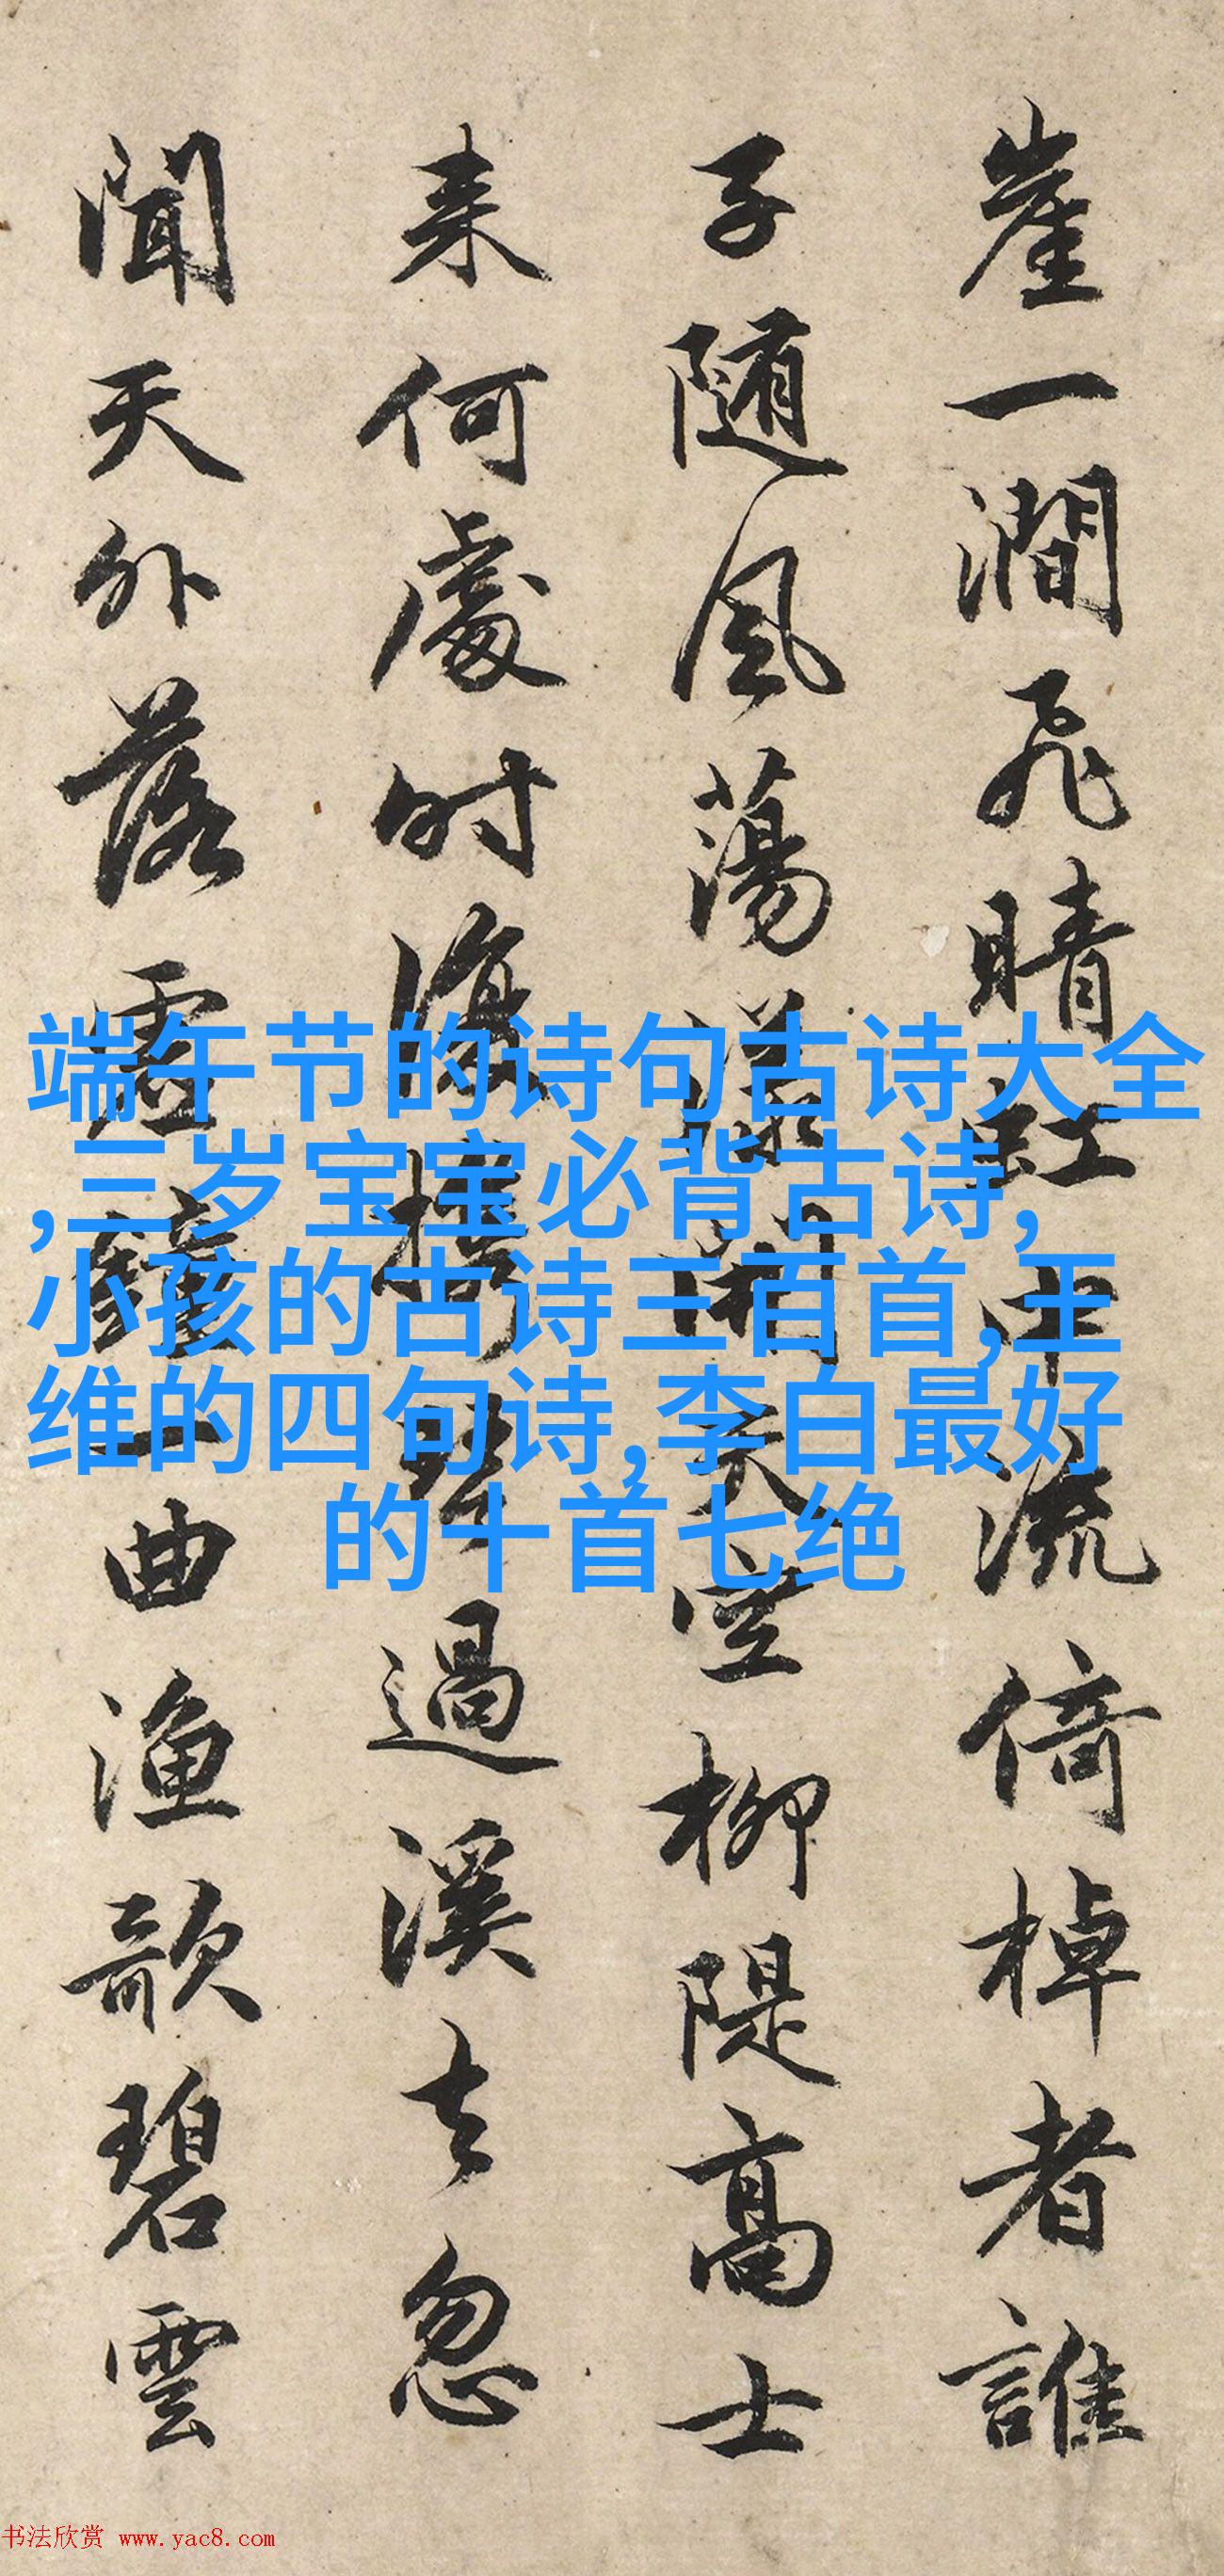 崖一澗飛晴虹中流倚棹者誰
子随風蕩漾開天空柳隄高士
来何處時復携琴過溪去忽
聞天外落靈鐘一曲漁歌碧雲
端午节的诗句古诗大全
,三岁宝宝必背古诗,
小孩的古诗三百首,王
维的四句诗,李白最好
的十首七绝
书法欣赏 www.yac8.com